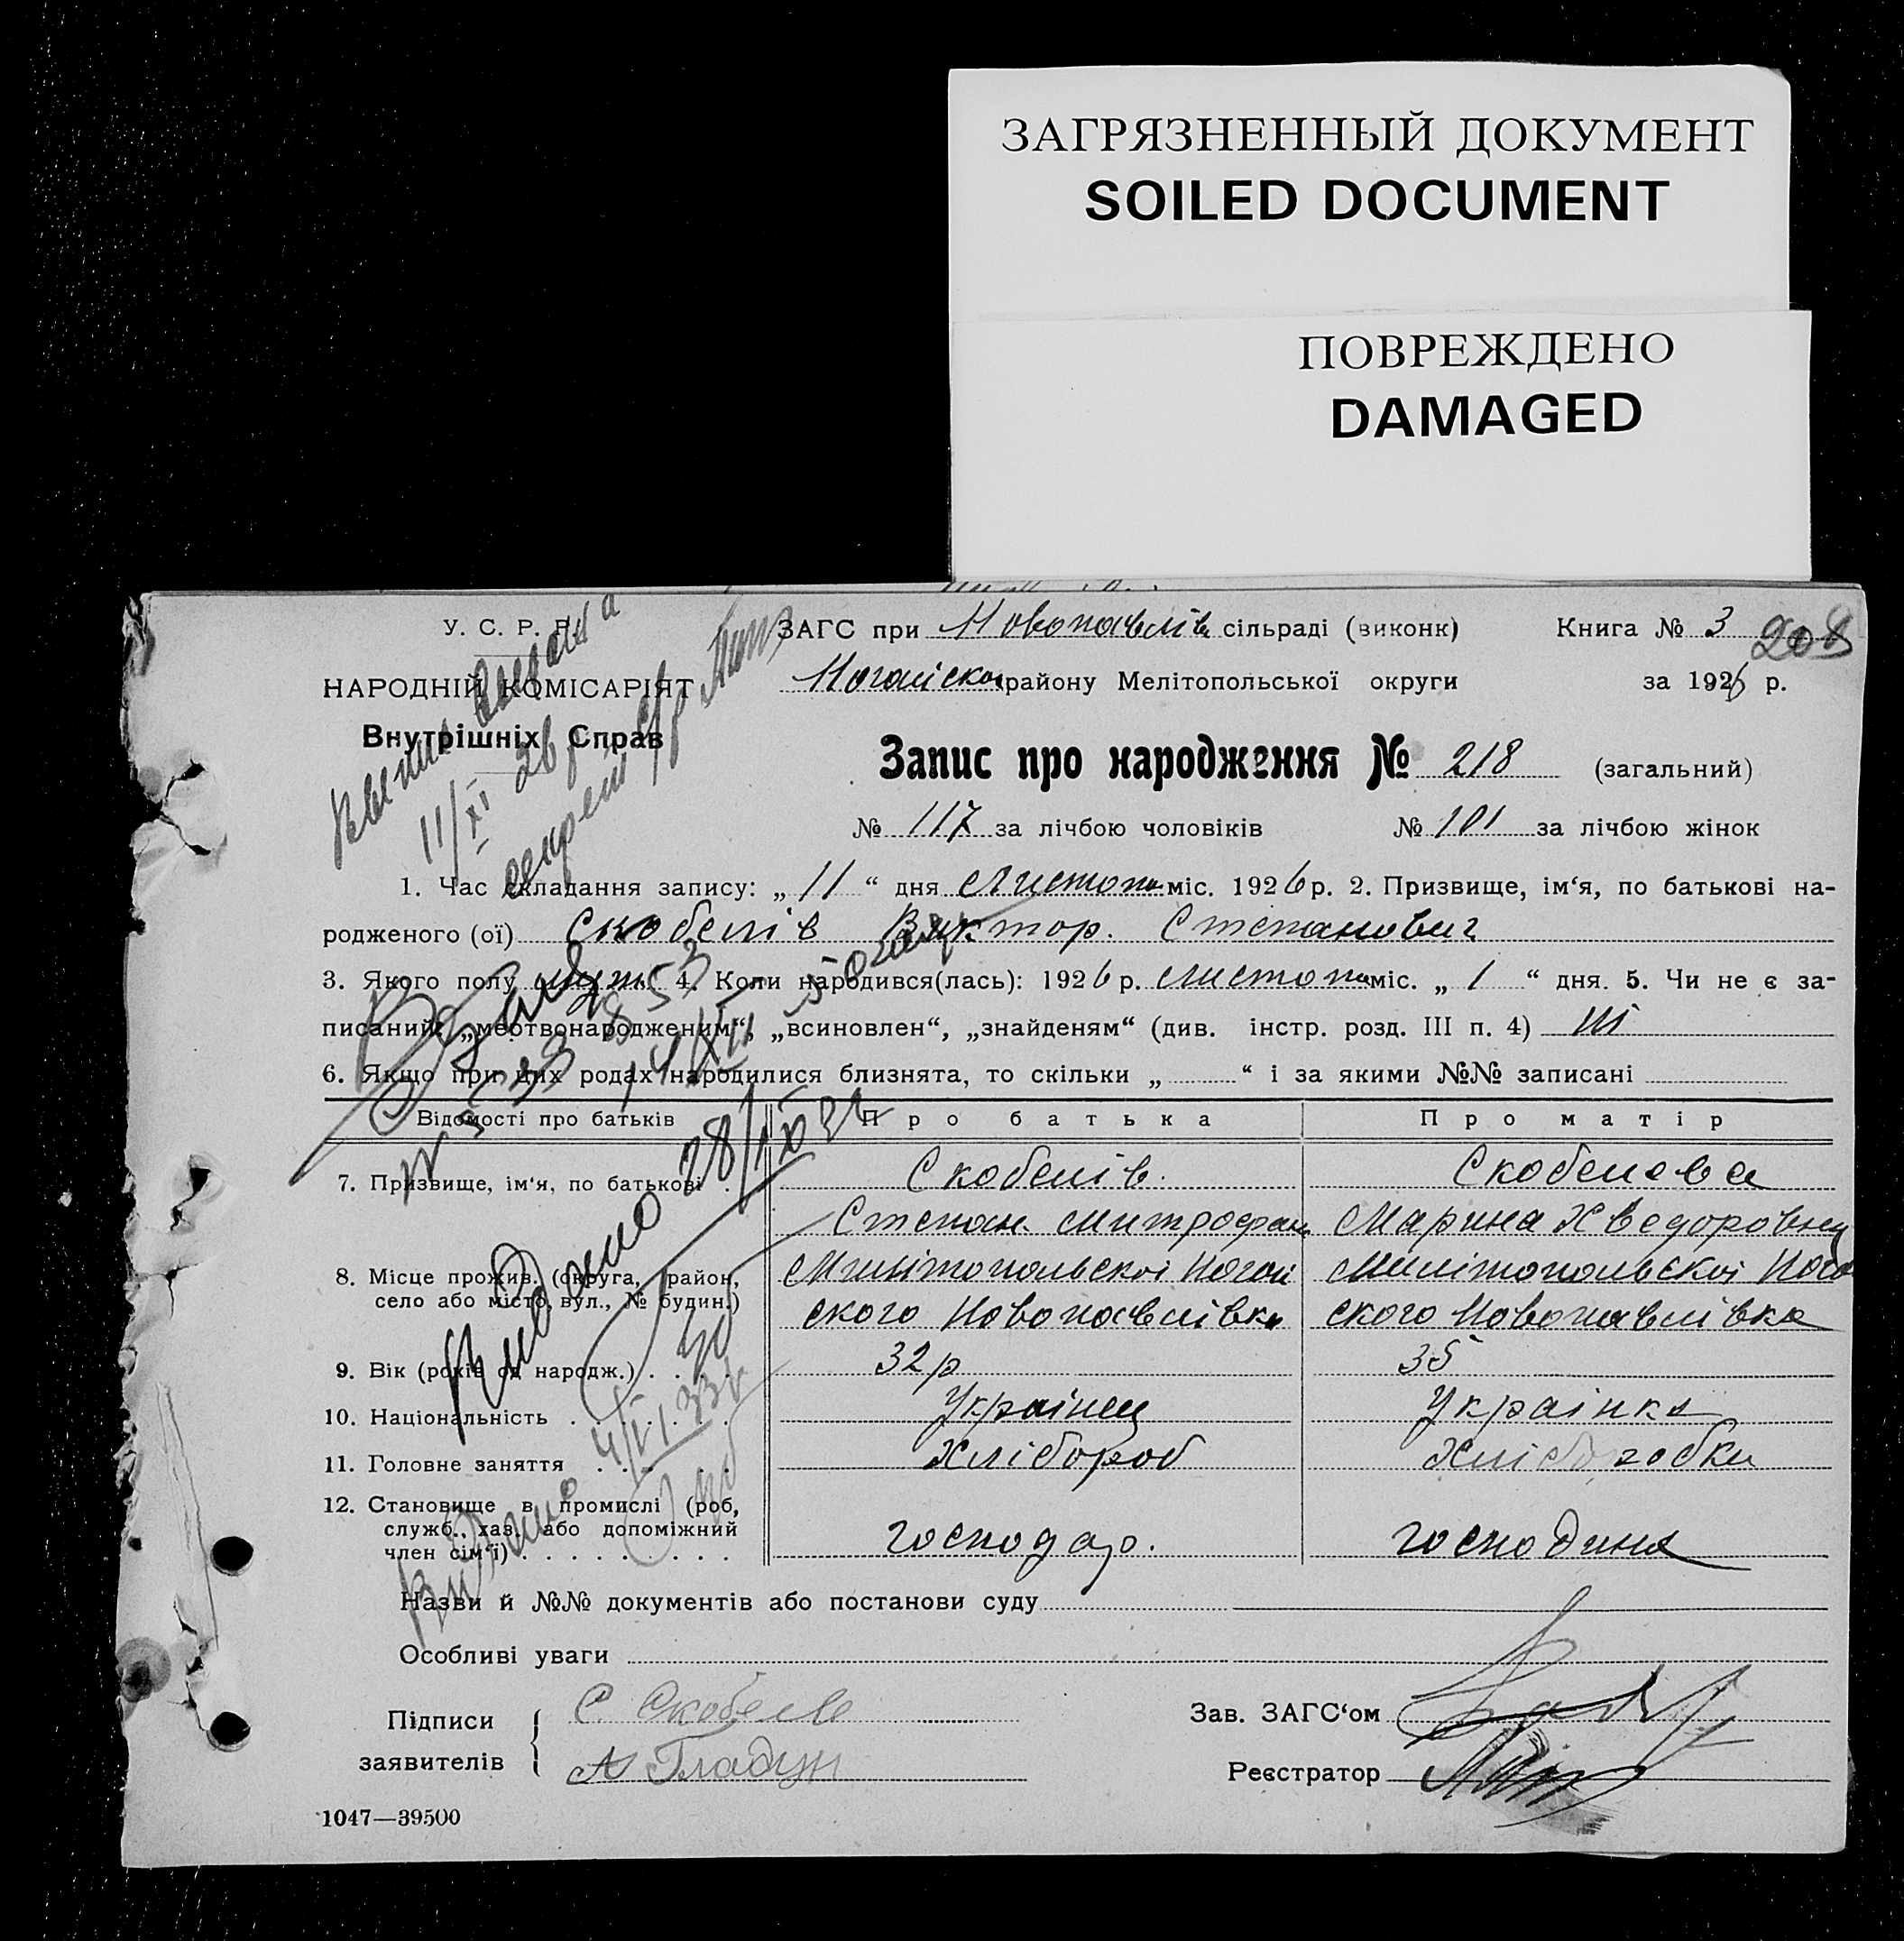 ЗАГРЯЗНЕННЫЙ ДОКУМЕНТ
SOILED DOCUMENT
ПОВРЕЖДЕНО
DAMAGED
У. С. Р. Р.
НАРОДНІЙ КОМІСАРІЯТ
Внутрішніх Справ
ЗАГС при Новопавлів сільраді (виконк) Книга № 3 208
району Мелітопольської округи за 1926 р.
Запис про народження № 218 (загальний)
№ 117 за лічбою чоловіків № 101 за лічбою жінок
11/XI 26 р
1. Час складання запису: „ 11 “ дня Листопа міс. 1926 р. 2. Призвище, ім‘я, по батькові на-
родженого (ої) Скобелів Виктор. Степанович
3. Якого полу муж. 4. Коли народився(лась): 1926 р. листопа міс. „ 1 “ дня. 5. Чи не є за-
писаний: „мертвонародженим“, „всиновлен“, „знайденям“ (див. інстр. розд. III п. 4) ні
6. Якщо при цих родах народилися близнята, то скільки „ “ і за якими №№ записані
Відомості про батьків Про батька Про матір
7. Призвище, ім‘я, по батькові . Скобелів. Скобелева
Степан Митрофан Марина Хведоровна
8. Місце прожив. (округа, район, село або місто, вул., № будин.) Милітопольскої Ногай Милітопольскої Нога
ского Новопавлівка ского Новопавлівка
9. Вік (років од народж.) . . . . 32 р 35
10. Національність . . . . . . . Українец Українка
11. Головне заняття . . . . . . Хлібороб
12. Становище в промислі (роб,
служб., хаз. або допоміжний
член сім‘ї) . . . . . . . . . господар. господиня
Видано 28/IX 32
Видано 4/VI 33 г
Назви й №№ документів або постанови суду
Особливі уваги
Підписи С. Скобелев Зав. ЗАГС‘ом
заявителів А Гладун Реєстратор
1047—39500